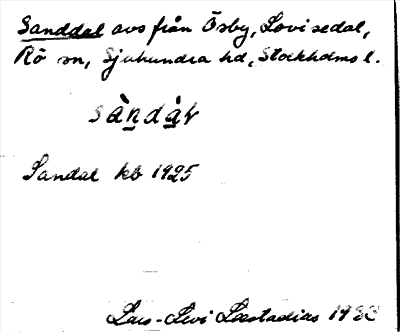 Sanddal avs från Ösby, Lovisedal,
Rö sn, Sjuhundra hd, Stockholms l.
sàndàɫ
Sandal kb 1925
Lars-Levi Læstadius 1933